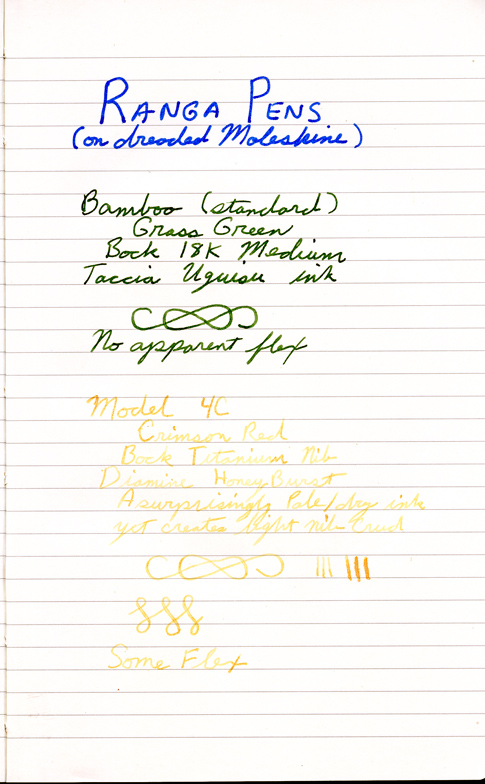 RANGA PENS
(on dreaded Moleskine)
Bamboo (standard)
Grass Green
Bock 18K Medium
Taccia Uguisu ink
No apparent flex
Model 4C
Crimson Red
Bock Titanium Nib
Diamine HoneyBurst
A surprisingly Pale/dry ink
yet creates light nib crud
Some Flex